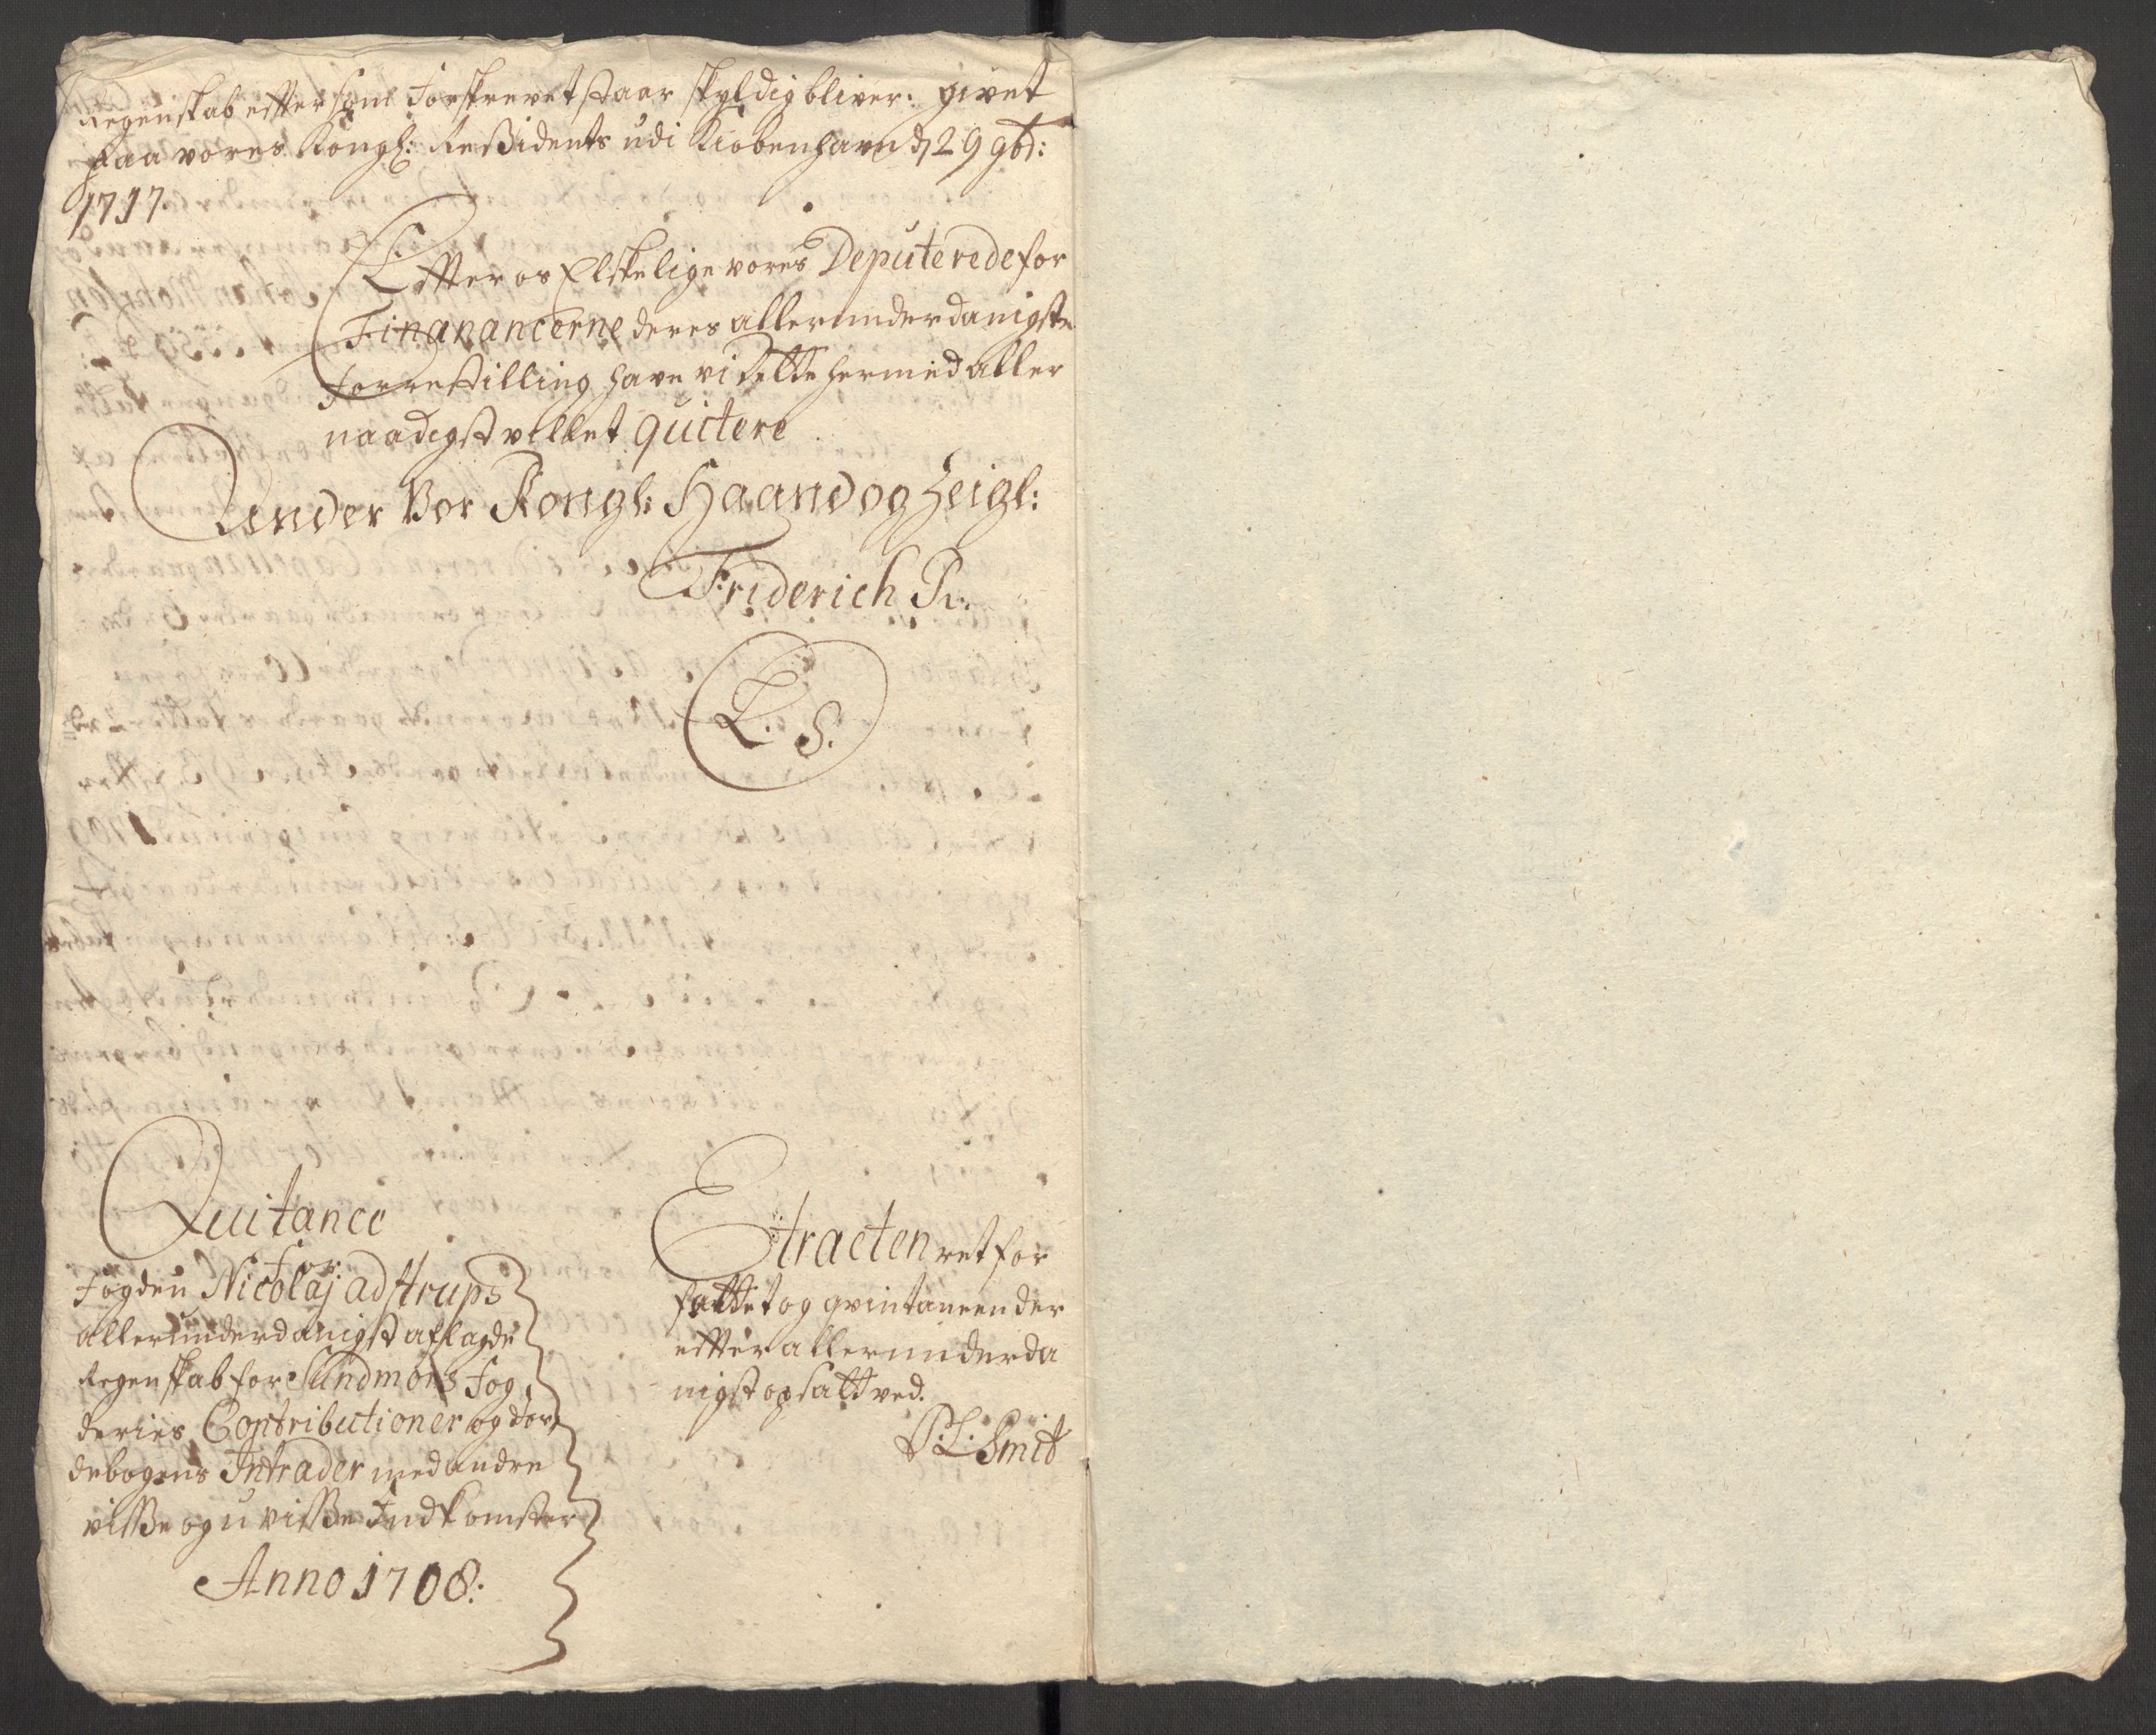 Regenskab effter som forskrevet staar skyldig bliver: givet
paa vores Kongl: Reßidents udi Kiøbenhavn d 29 9br:
1717
Effter os Elskelige vores Deputerede for
Finanancerne deres allerunderdanigste
forrestilling have vi dette hermed aller
naadigst villet quitere
Under Vor Kongl: Haand og Zeigl:
Friderich R:
L. S.
Quitance
For
Fogden Nicolaj adstrups
allerunderdanigst aflagde
Regenskab for Sundmørs Fog
deries Contributioner og Jor
debogens Intrader med andre
visße og u visße Indkomster
Anno 1708:
Etracten ret for
fattet og qvintancen der
effter allerunderda
nigst opsatt ved.
P: L: Smit